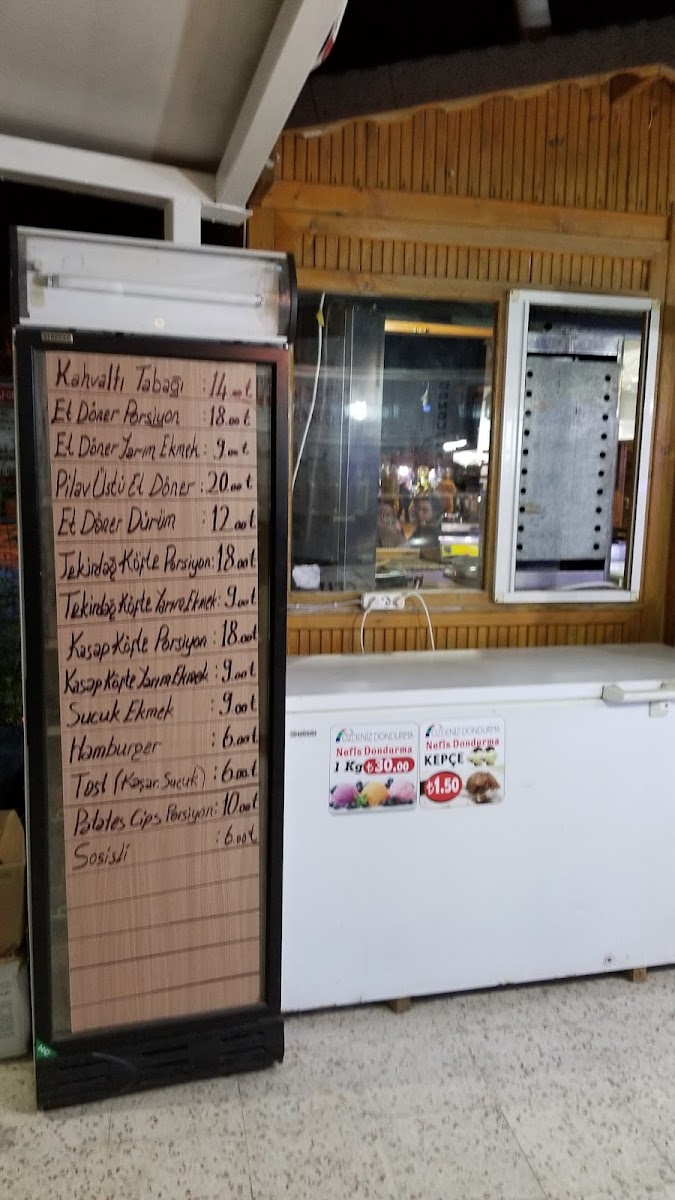 Kahvaltı Tabağı : 14.00 t
Et Döner Porsiyon : 18.00 t
Et Döner Yarım Ekmek : 9.00 t
Pilav Üstü Et Döner : 20.00 t
Et Döner Dürüm : 12.00 t
Tekirdağ Köfte Porsiyon : 18.00 t
Tekirdağ Köfte Yarım Ekmek : 9.00 t
Kasap Köfte Porsiyon : 18.00 t
Kasap Köfte Yarım Ekmek : 9.00 t
Sucuk Ekmek : 9.00 t
Hamburger : 6.00 t
Tost (Kaşar. Sucuk) : 6.00 t
Patates Cips Porsiyon : 10.00 t
Sosisli : 6.00 t
ÖZDENİZ DONDURMA
Nefis Dondurma
1 Kg ₺30.00
ÖZDENİZ DONDURMA
Nefis Dondurma
KEPÇE
₺1.50